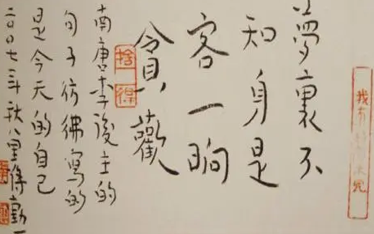 夢裏不
知身是
客一晌
貪歡
捨得
南唐李後主的
句子彷彿寫的
是今天的自己
二〇〇七年秋八里蔣勳
我有